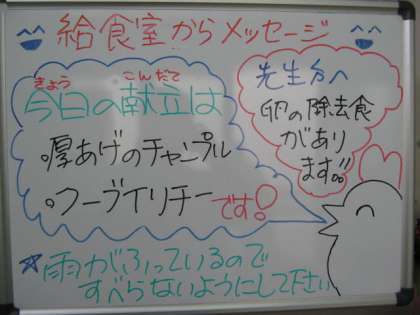 給食室からメッセージ
きょう こんだて
今日の献立は
。厚あげのチャンプル
。クーブイリチーです!
先生方へ
卵の除去食
があり
ます!!
☆雨がふっているので
すべらないようにして下さい